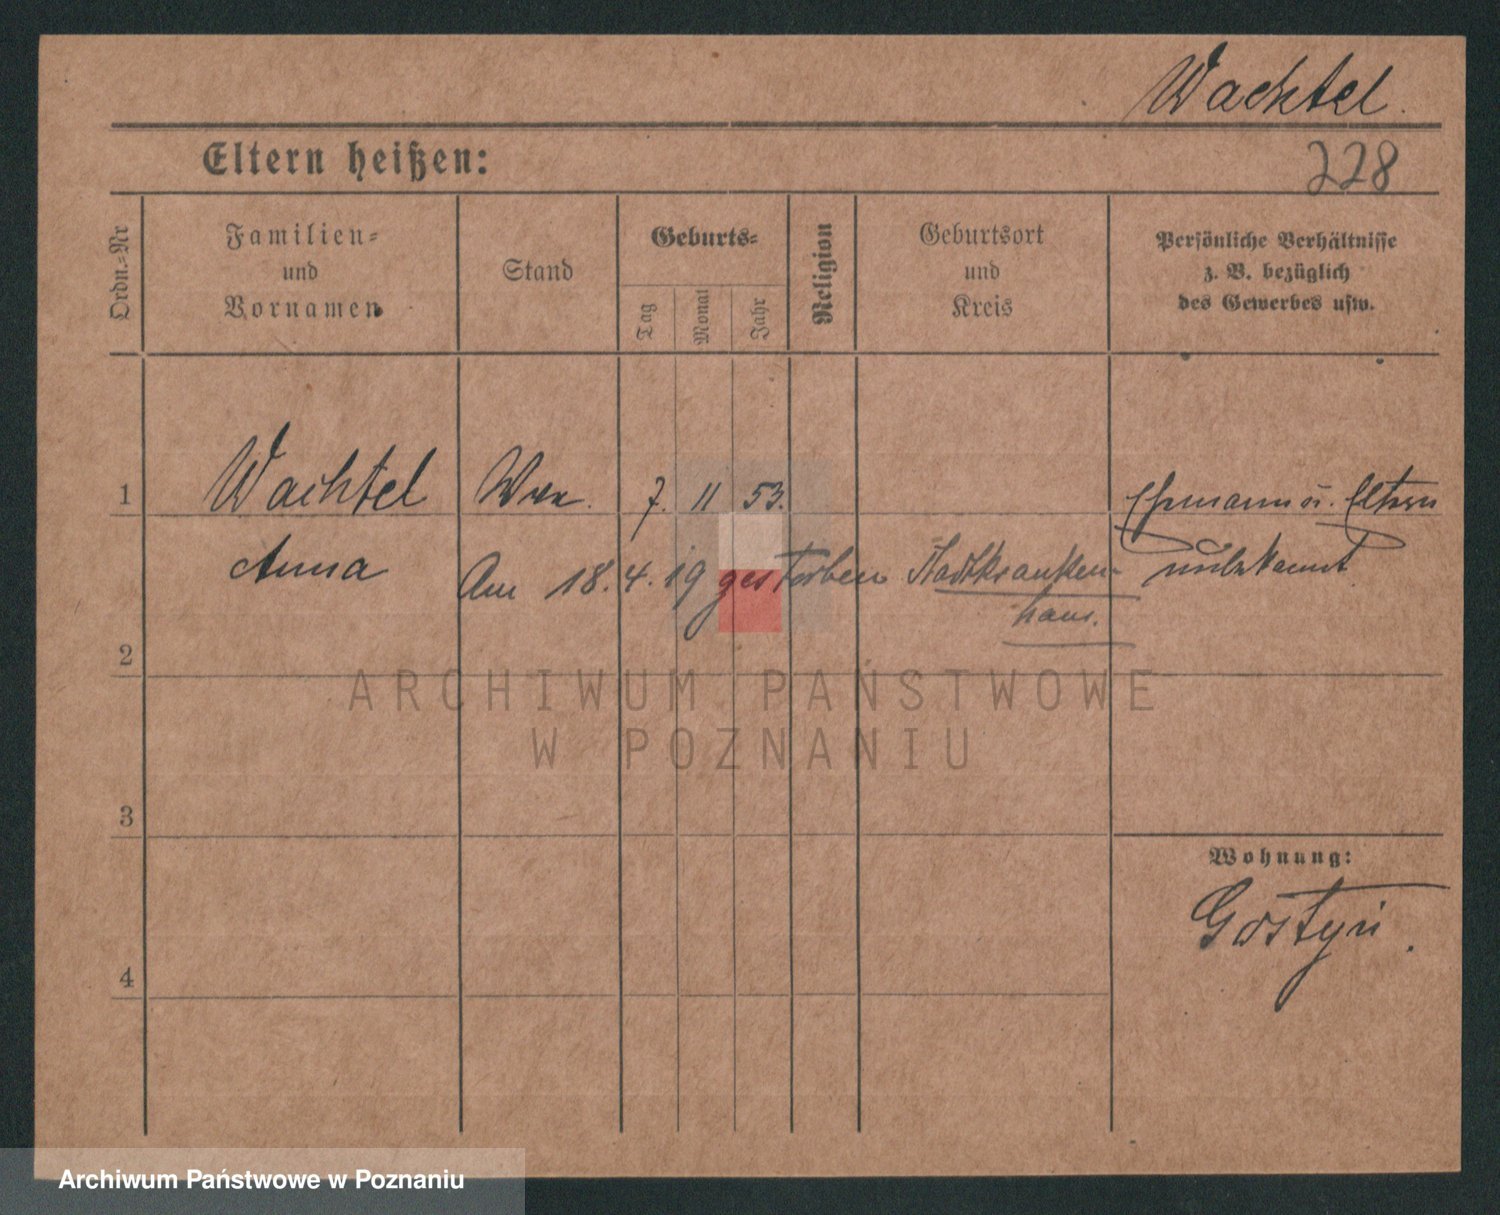 Wachtel.
Eltern heißen:
228
Ordn.-Nr
Familien-
und
Vornamen
Stand
Geburts-
Tag
Monat
Jahr
Religion
Geburtsort
und
Kreis
Persönliche Verhältnisse
z. B. bezüglich
des Gewerbes usw.
1
Wachtel
Wwe.
7. 11 53.
Ehemann u. Eltern
Anna
Am 18. 4. 19 gestorben Stadtkranken-
haus.
unbekannt
2
ARCHIWUM PAŃSTWOWE
W POZNANIU
3
Wohnung:
Gostyń.
4
Archiwum Państwowe w Poznaniu